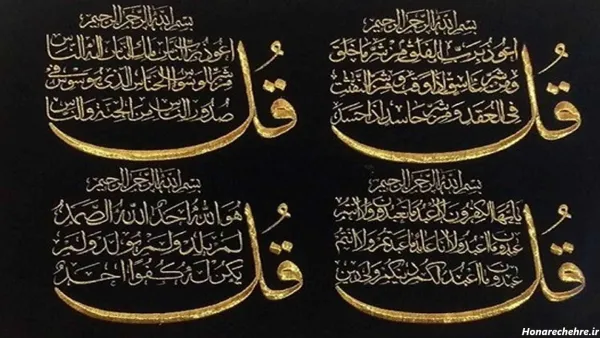 بسم الله الرحمن الرحيم
قل اعوذ برب الفلق من شر ما خلق
ومن شر غاسق اذا وقب ومن شر النفثت
في العقد ومن شر حاسد اذا حسد
بسم الله الرحمن الرحيم
قل اعوذ برب الناس ملك الناس اله الناس
من شر الوسواس الخناس الذي يوسوس في
صدور الناس من الجنة والناس
بسم الله الرحمن الرحيم
قل يايها الكفرون لا اعبد ما تعبدون ولا انتم
عبدون ما اعبد ولا انا عابد ما عبدتم ولا انتم
عبدون ما اعبد لكم دينكم ولي دين
بسم الله الرحمن الرحيم
قل هو الله احد الله الصمد
لم يلد ولم يولد ولم
يكن له كفوا احد
Honarechehre.ir